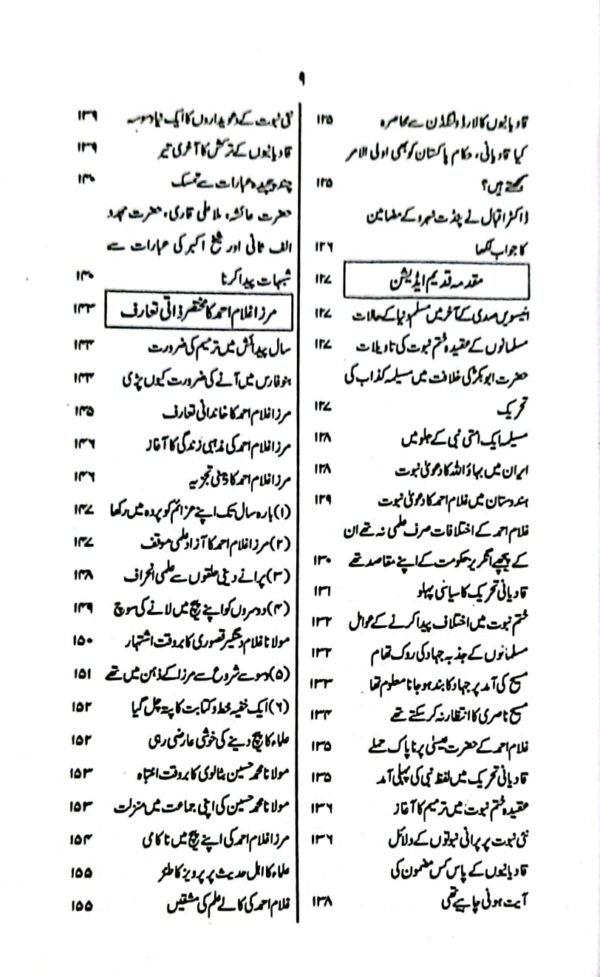 ۹
قادیانیوں کا لارڈ ولنگڈن سے محاصرہ ۱۲۵
کیا قادیانی، حکام پاکستان کو بھی اولی الامر
سمجھتے ہیں؟ ۱۲۵
ڈاکٹر اقبال نے پنڈت نہرو کے مضامین
کا جواب لکھا ۱۲۶
مقدمہ قدیم ایڈیشن ۱۲۷
انیسویں صدی کے آخر میں مسلم دنیا کے حالات ۱۲۷
مسلمانوں کے عقیدہ ختم نبوت کی تاویلات ۱۲۷
حضرت ابوبکرؓ کی خلافت میں مسیلمہ کذاب کی
تحریک ۱۲۷
مسیلمہ ایک امتی نبی کے جلو میں ۱۲۸
ایران میں بہاؤ اللہ کا دعویٰ نبوت ۱۲۸
ہندوستان میں غلام احمد کا دعویٰ نبوت ۱۲۹
غلام احمد کے اختلافات صرف علمی نہ تھے ان
کے پیچھے انگریز حکومت کے اپنے مقاصد تھے ۱۳۰
قادیانی تحریک کا سیاسی پہلو ۱۳۱
ختم نبوت میں اختلاف پیدا کرنے کے عوامل ۱۳۲
مسلمانوں کے جذبہ جہاد کی روک تھام ۱۳۲
مسیح کی آمد پر جہاد کا بند ہو جانا معلوم تھا ۱۳۳
مسیح ناصری کا انتظار نہ کر سکتے تھے ۱۳۴
غلام احمد کے حضرت عیسیٰ پر ناپاک حملے ۱۳۵
قادیانی تحریک میں لفظ نبی کی پہلی آمد ۱۳۵
عقیدہ ختم نبوت میں ترمیم کا آغاز ۱۳۶
نئی نبوت پر پرانی نبوتوں کے دلائل ۱۳۶
قادیانیوں کے پاس کس مضمون کی
آیت ہونی چاہیے تھی ۱۳۸
نئی نبوت کے دعویداروں کا ایک نیا وسوسہ ۱۳۹
قادیانیوں کے ترکش کا آخری تیر ۱۳۹
چند پیچیدہ عبارات سے تمسک ۱۴۰
حضرت عائشہ، ملا علی قاری، حضرت مجدد
الف ثانی اور شیخ اکبر کی عبارات سے
شبہات پیدا کرنا ۱۴۰
مرزا غلام احمد کا مختصر ذاتی تعارف ۱۴۳
سال پیدائش میں ترمیم کی ضرورت ۱۴۳
بنو فارس میں آنے کی ضرورت کیوں پڑی ۱۴۴
مرزا غلام احمد کا خاندانی تعارف ۱۴۵
مرزا غلام احمد کی مذہبی زندگی کا آغاز ۱۴۶
مرزا غلام احمد کا ذہنی تجزیہ ۱۴۶
(۱) بارہ سال تک اپنے عزائم کو پردہ میں رکھا ۱۴۷
(۲) مرزا غلام احمد کا آزاد علمی موقف ۱۴۷
(۳) پرانے دینی حلقوں سے علمی انحراف ۱۴۸
(۴) دوسروں کو اپنے پیچ میں لانے کی سوچ ۱۴۹
مولانا غلام دستگیر قصوری کا بروقت اشتہار ۱۵۰
(۵) دعوے شروع سے مرزا کے ذہن میں تھے ۱۵۱
(۶) ایک خفیہ خط و کتابت کا پتہ چل گیا ۱۵۲
علماء کو پیچ دینے کی خوشی عارضی رہی ۱۵۲
مولانا محمد حسین بٹالوی کا بروقت انتباہ ۱۵۳
مولانا محمد حسین کی اپنی جماعت میں منزلت ۱۵۳
مرزا غلام احمد کی اپنے پیچ میں ناکامی ۱۵۴
علماء کا اہل حدیث پر پرویز کا طنز ۱۵۵
غلام احمد کی کالے علم کی مشقیں ۱۵۵